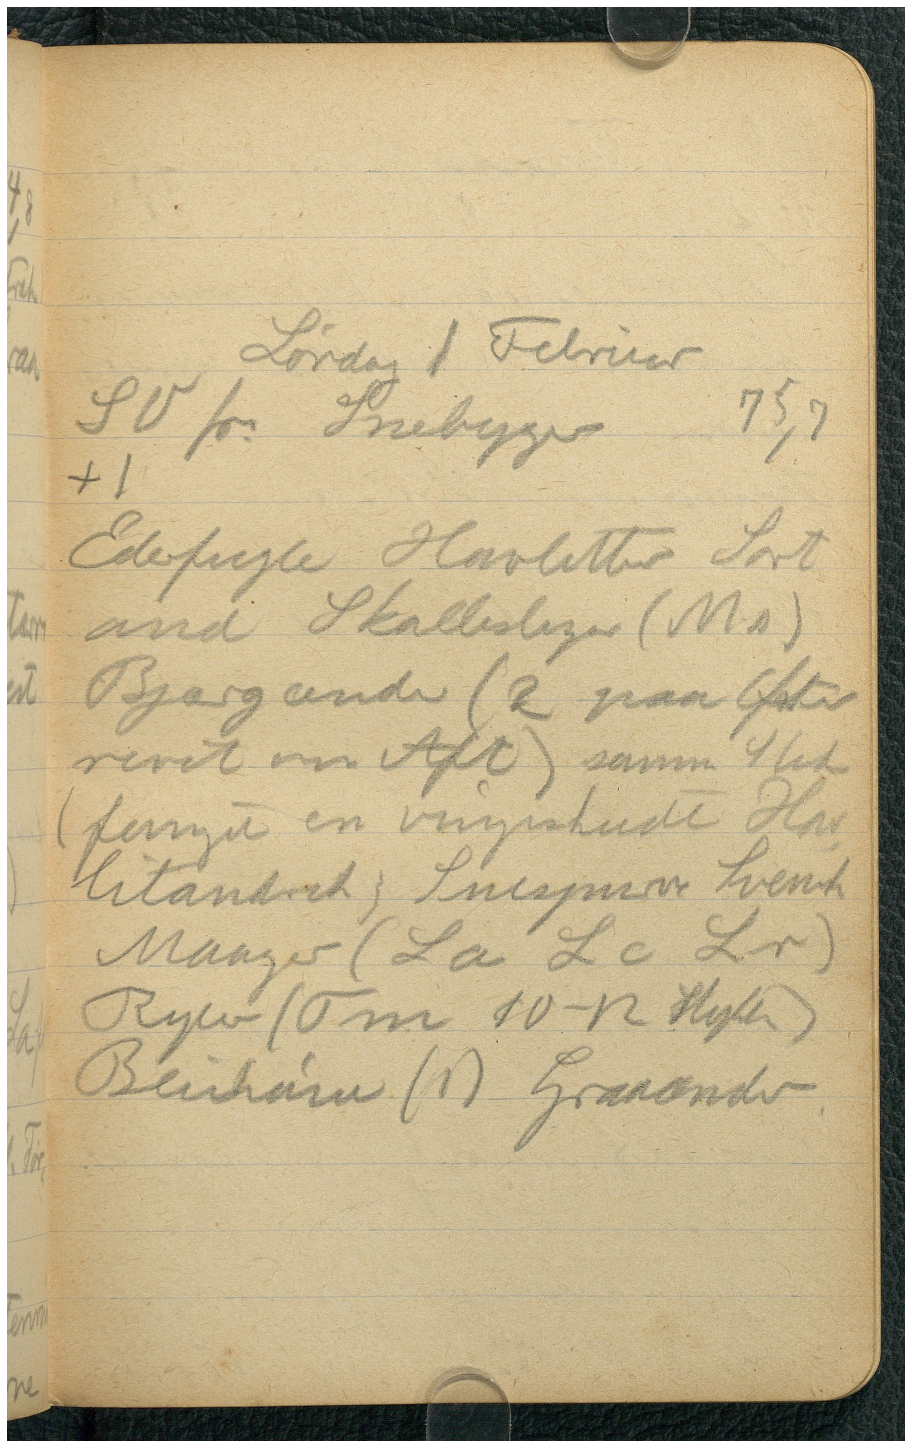 Lørdag 1 Februar
SV fr. Snebyger 75,7
+1
Ederfugle Havlitter Sort
and Skallesluger (Ms)
Bjergænder (2 paa Øster
revet om Aft) samme Sted
(fanget en vingeskudt Hav
litandrik; Snespurve Svensk
Maager (La Lc Lr)
Ryler (Tm 10-12 Stykker)
Blishøne (1) Graaænder